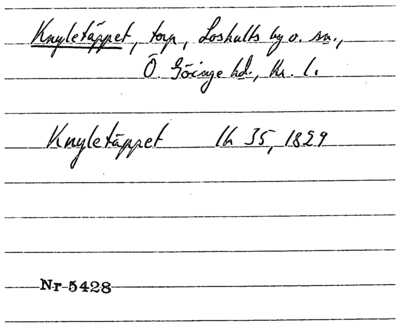 Knyletäppet, torp, Loshults by o. sn.,
Ö Göinge hd., Kr. l.
Knyletäppet lh 35, 1829
Nr 5428